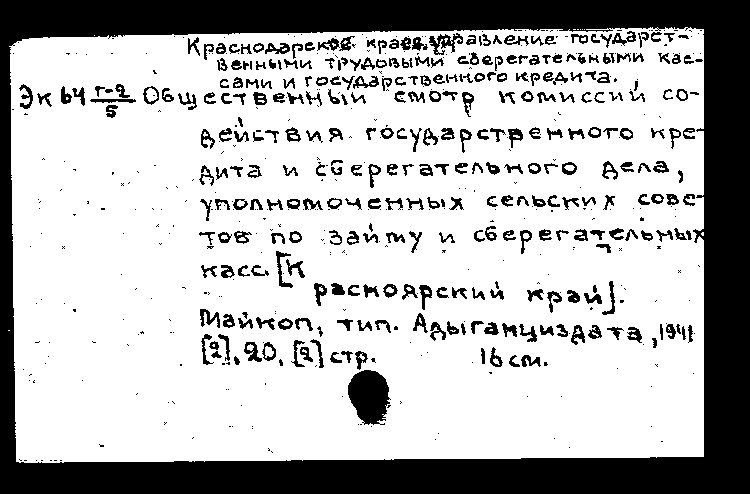 Краснодарское краев. управление государст-
венными трудовыми сберегательными кас-
сами и государственного кредита.
Эк 64 г-2/5 Общественный смотр комиссий со-
действия государственного кре-
дита и сберегательного дела,
уполномоченных сельских сове-
тов по займу и сберегательных
касс. [К
расноярский край].
Майкоп, тип. Адыгнациздата, 1941
[2], 20, [2] стр. 16 см.